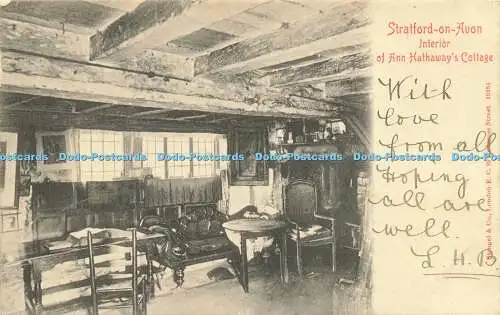 Stratford-on-Avon
Interior
of Ann Hathaway's Cottage
With
love
from all
Hoping
all are
well.
L.H.B
Dodo-Postcards Dodo-Postcards Dodo-Postcards Dodo-Postcards Dodo-Postcards
& Co., London E. C. Street